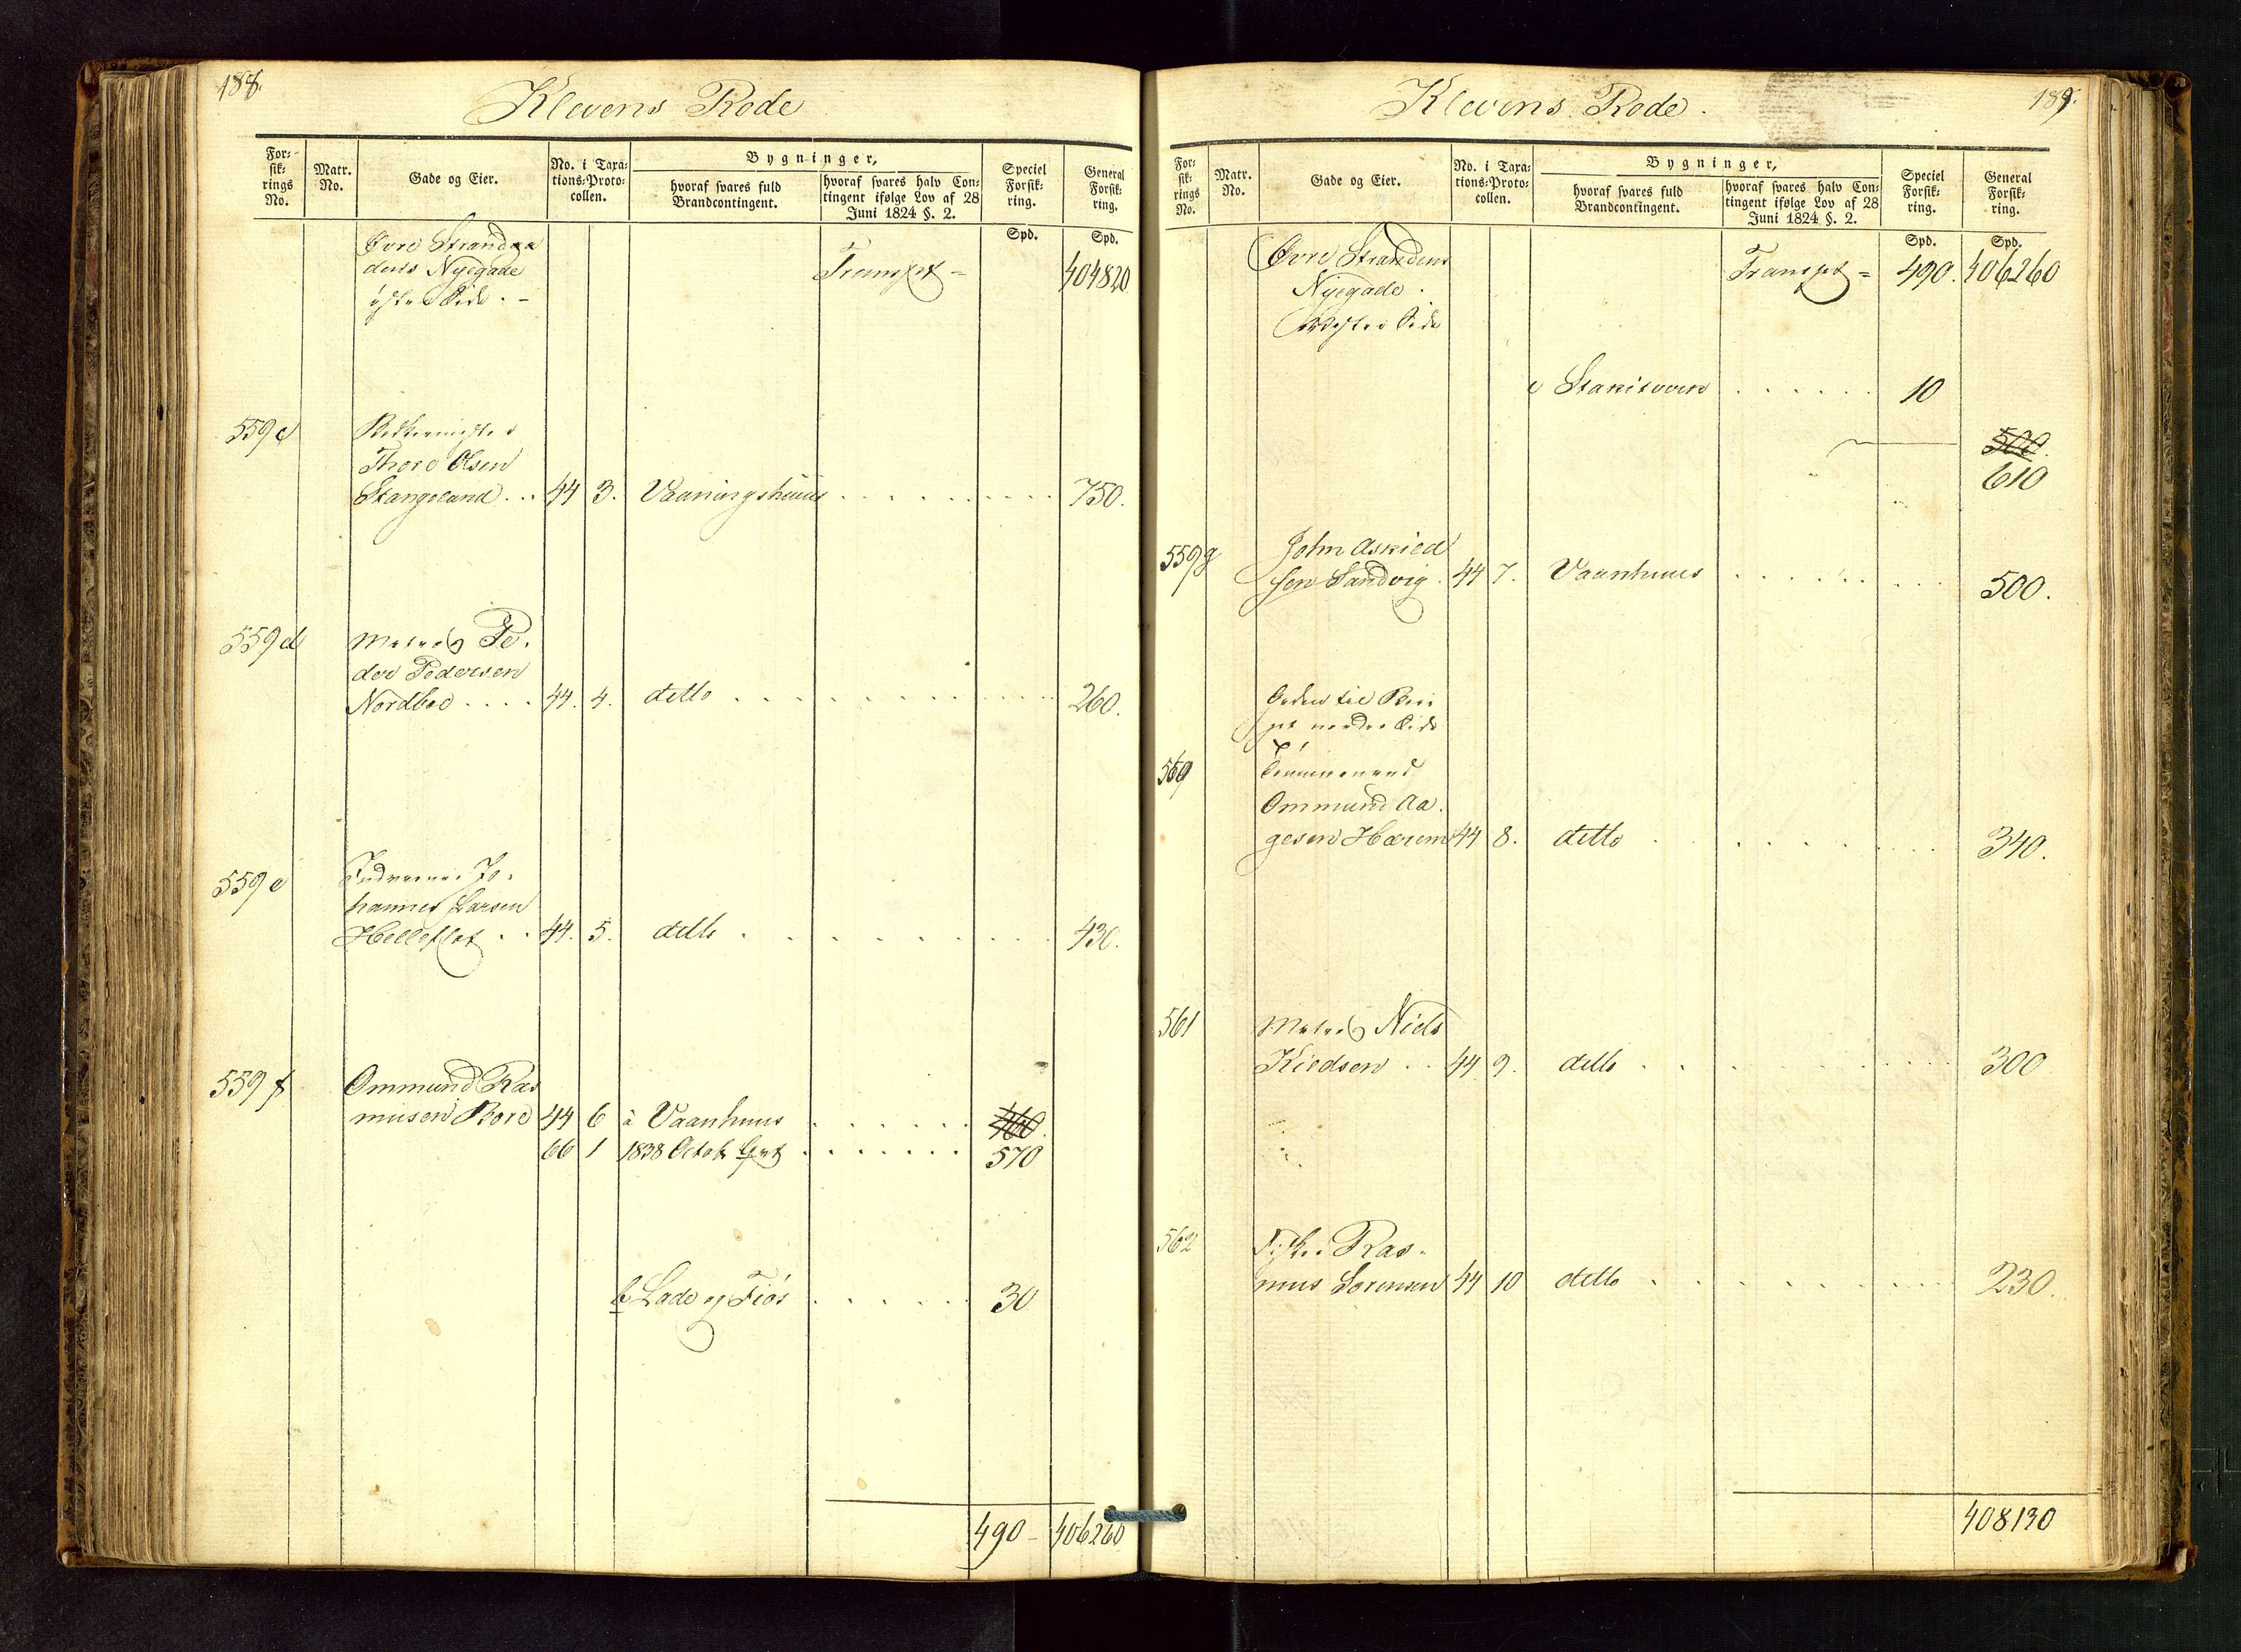 188.
Klevens Rode
For=
sik=
rings
No.
Matr.
No.
Gade og Eier.
No. i Taxa=
tions=Proto=
collen.
Bygninger,
hvoraf svares fuld
Brandcontingent.
hvoraf svares halv Con=
tingent ifølge Lov af 28
Juni 1824 §. 2.
Speciel
Forsik=
ring.
General
Forsik=
ring.
Spd.
Spd.
Øvre Strand
dens Nyegade
østre Side . - Transpt = 404820
559 c
Thore Olsen
Stangeland . . 44 3. Vaaningshuus . . . . 750.
559 d Matros Pe.
der Pedersen
Nordboe . . . . 44. 4. detto . . . . 260.
559 e Jo.
hannes Larsen
Helleflot . . 44. 5. detto . . . . 430.
559 f Ommund Ras
musen Bore 44 6 a Vaanhuus . . . . 460.
66 1 1838 Octob . . . . 570
b Lade og Fiøs . . . . 30
490 - 406260
189.
Klevens Rode.
For=
sik=
rings
No.
Matr.
No.
Gade og Eier.
No. i Taxa=
tions=Proto=
collen.
Bygninger,
hvoraf svares fuld
Brandcontingent.
hvoraf svares halv Con=
tingent ifølge Lov af 28
Juni 1824 §. 2.
Speciel
Forsik=
ring.
General
Forsik=
ring.
Spd.
Spd.
Øvre Strandens
Nyegade . Transpt = 490. 406260
Vestre Side
c Stakitværk . . . . 10
500.
610
559 g John Askied
sen Sandvig . 44 7. Vaanhuus . . . . 500.
nordre Side
560 Tømmermand
Ommund Aa.
gesen Hærem 44 8. detto . . . . 340.
561 Matros Niels
Kieldsen . . 44 9. detto . . . . 300
562 Fisker Ras.
mus Sørensen 44 10 detto . . . . 230.
408130